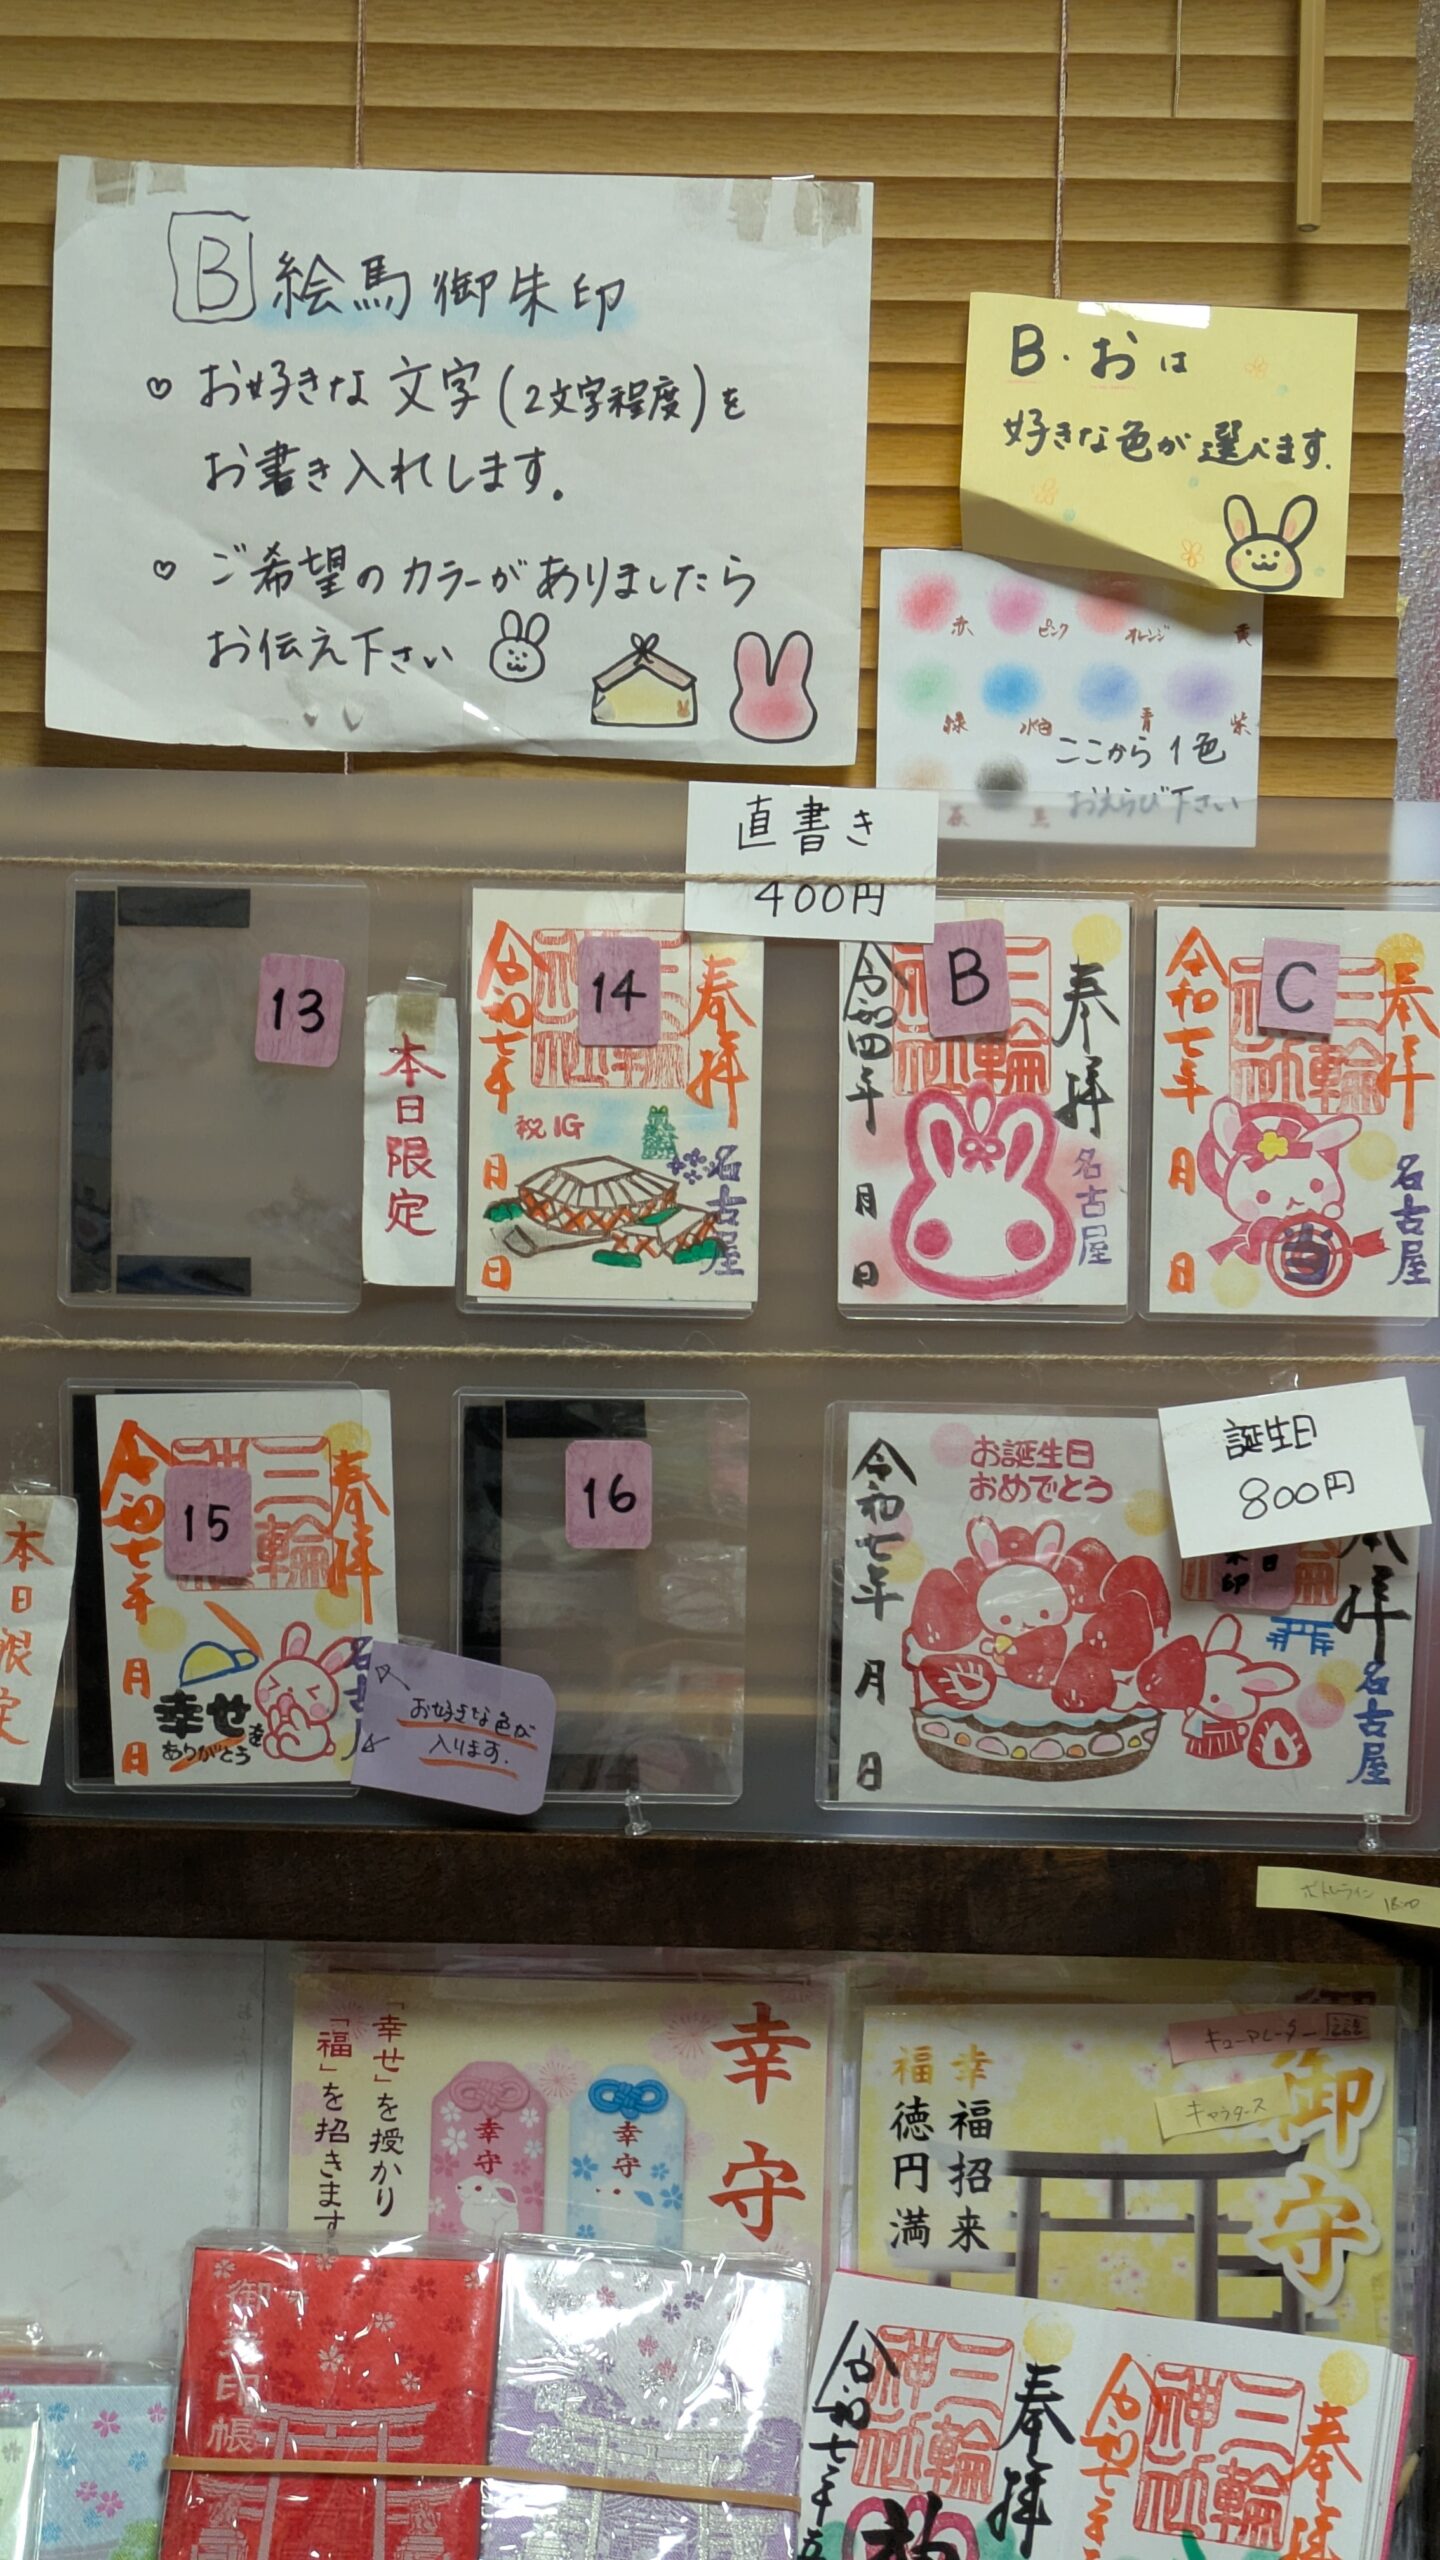 B 絵馬御朱印
♡ お好きな文字(2文字程度)を
お書き入れします。
♡ ご希望のカラーがありましたら
お伝え下さい
B・おは
好きな色が選べます.
赤 ピンク オレンジ 黄
緑 水色 青 紫
茶 黒
ここから1色
おえらび下さい
直書き
400円
13
本日限定
14
奉拝
三輪神社
令和七年
月
日
祝IG
名古屋
B
奉拝
三輪神社
令和四年
月
日
名古屋
C
奉拝
三輪神社
令和七年
月
日
名古屋
当
本日限定
15
奉拝
三輪神社
令和七年
月
日
幸せを
ありがとう
名古屋
お好きな色が
入ります.
16
誕生日
800円
お誕生日
おめでとう
奉拝
令和七年
月
日
名古屋
18:00
幸守
「幸せ」を授かり
「福」を招きます
幸守
幸守
キューアレーター
キャラタース
御守
幸福招来
福徳円満
御朱印帳
奉拝
三輪神社
令和七年
奉拝
三輪神社
令和七年